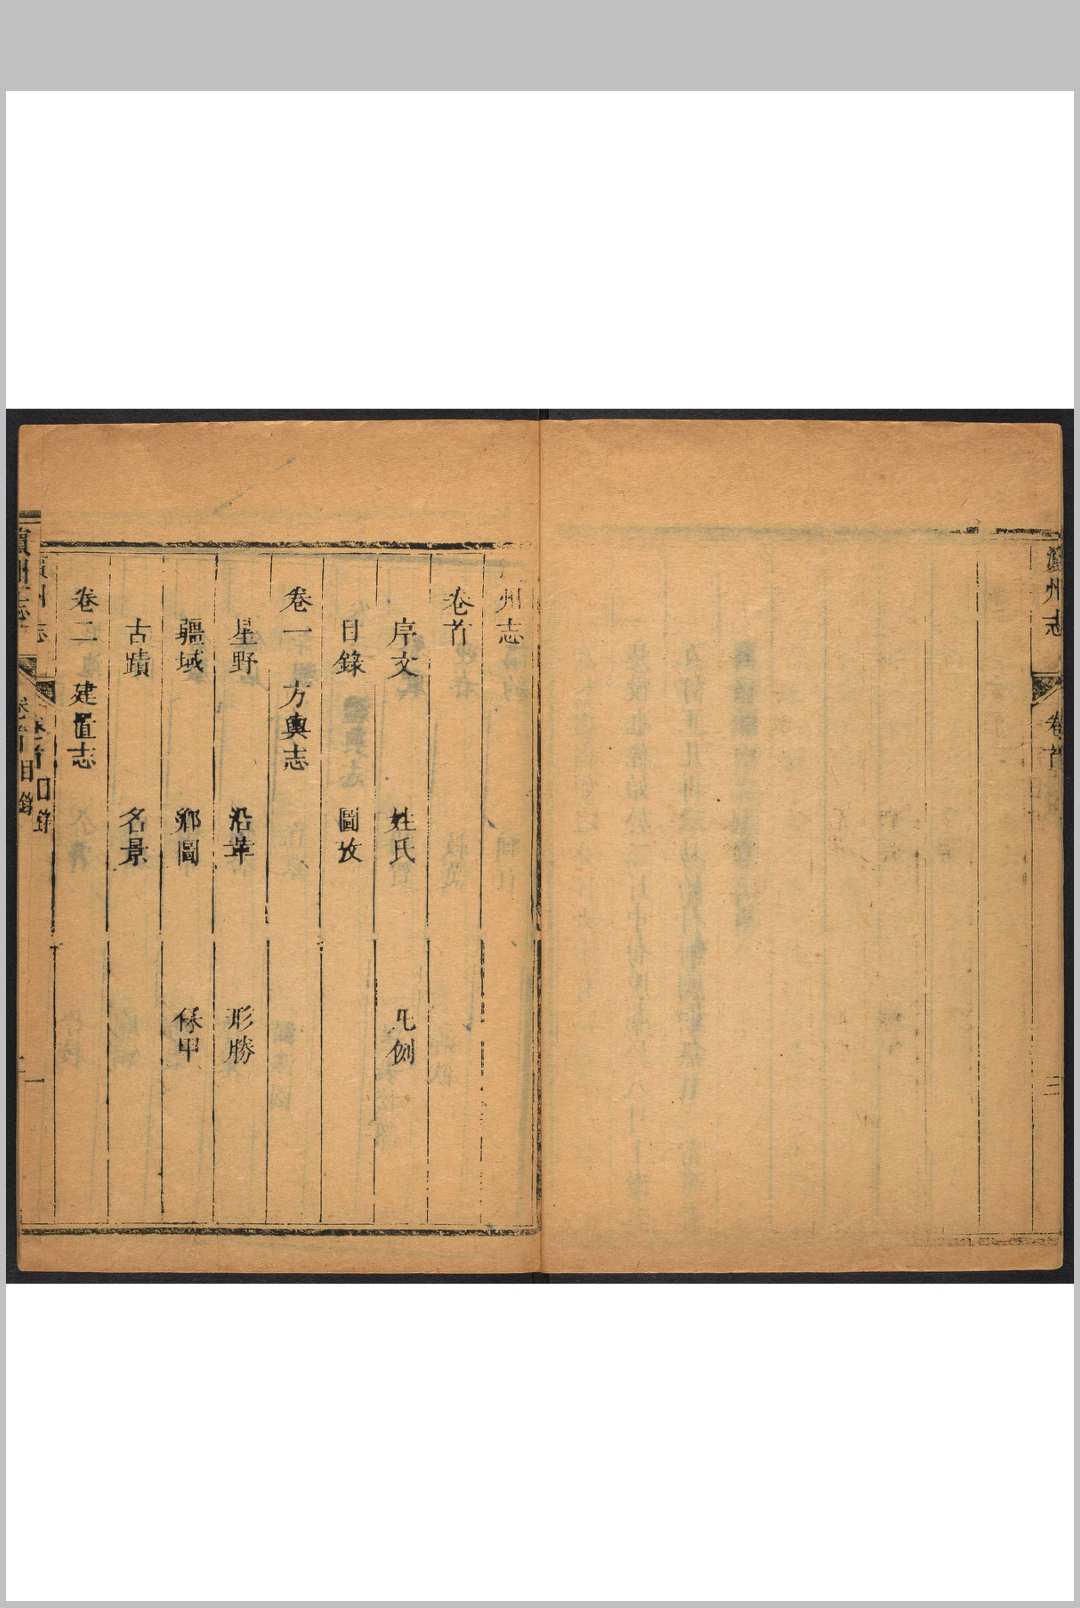 州志
卷首
三
州志
卷首
序文 姓氏 凡例
目錄 圖攷
卷一 方輿志
星野 沿革 形勝
疆域 鄉圖 保甲
古蹟 名景
卷二 建置志
州志
卷首目錄
一